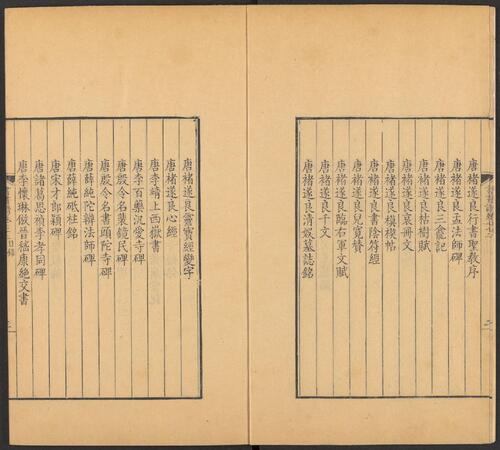 唐褚遂良行書聖敎序
唐褚遂良孟法師碑
唐褚遂良三龕記
唐褚遂良枯樹賦
唐褚遂良哀冊文
唐褚遂良模楔帖
唐褚遂良書陰符經
唐褚遂良兒寬贊
唐褚遂良臨右軍文賦
唐褚遂良千文
唐褚遂良清奴墓誌銘
唐褚遂良靈寶經變字
唐褚遂良心經
唐李靖上西嶽書
唐李百藥汎愛寺碑
唐殷令名裴鏡民碑
唐殷令名書頭陀寺碑
唐薛純陀辯法師碑
唐薛純砥柱銘
唐宋才郎穎碑
唐諸葛思禎李孝同碑
唐李懷琳倣晉嵇康絶交書